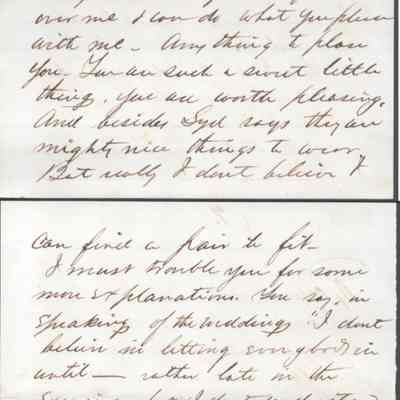 over me & can do what you please
with me - Anything to please
you. You are such a sweet little
thing, you are worth pleasing.
And besides Syd says they are
mighty nice things to wear.
But really I don't believe I
can find a pair to fit -
I must trouble you for some
more explanations. You say, in
speaking of the weddings "I dont
believe in letting everybody in
until — rather late in the